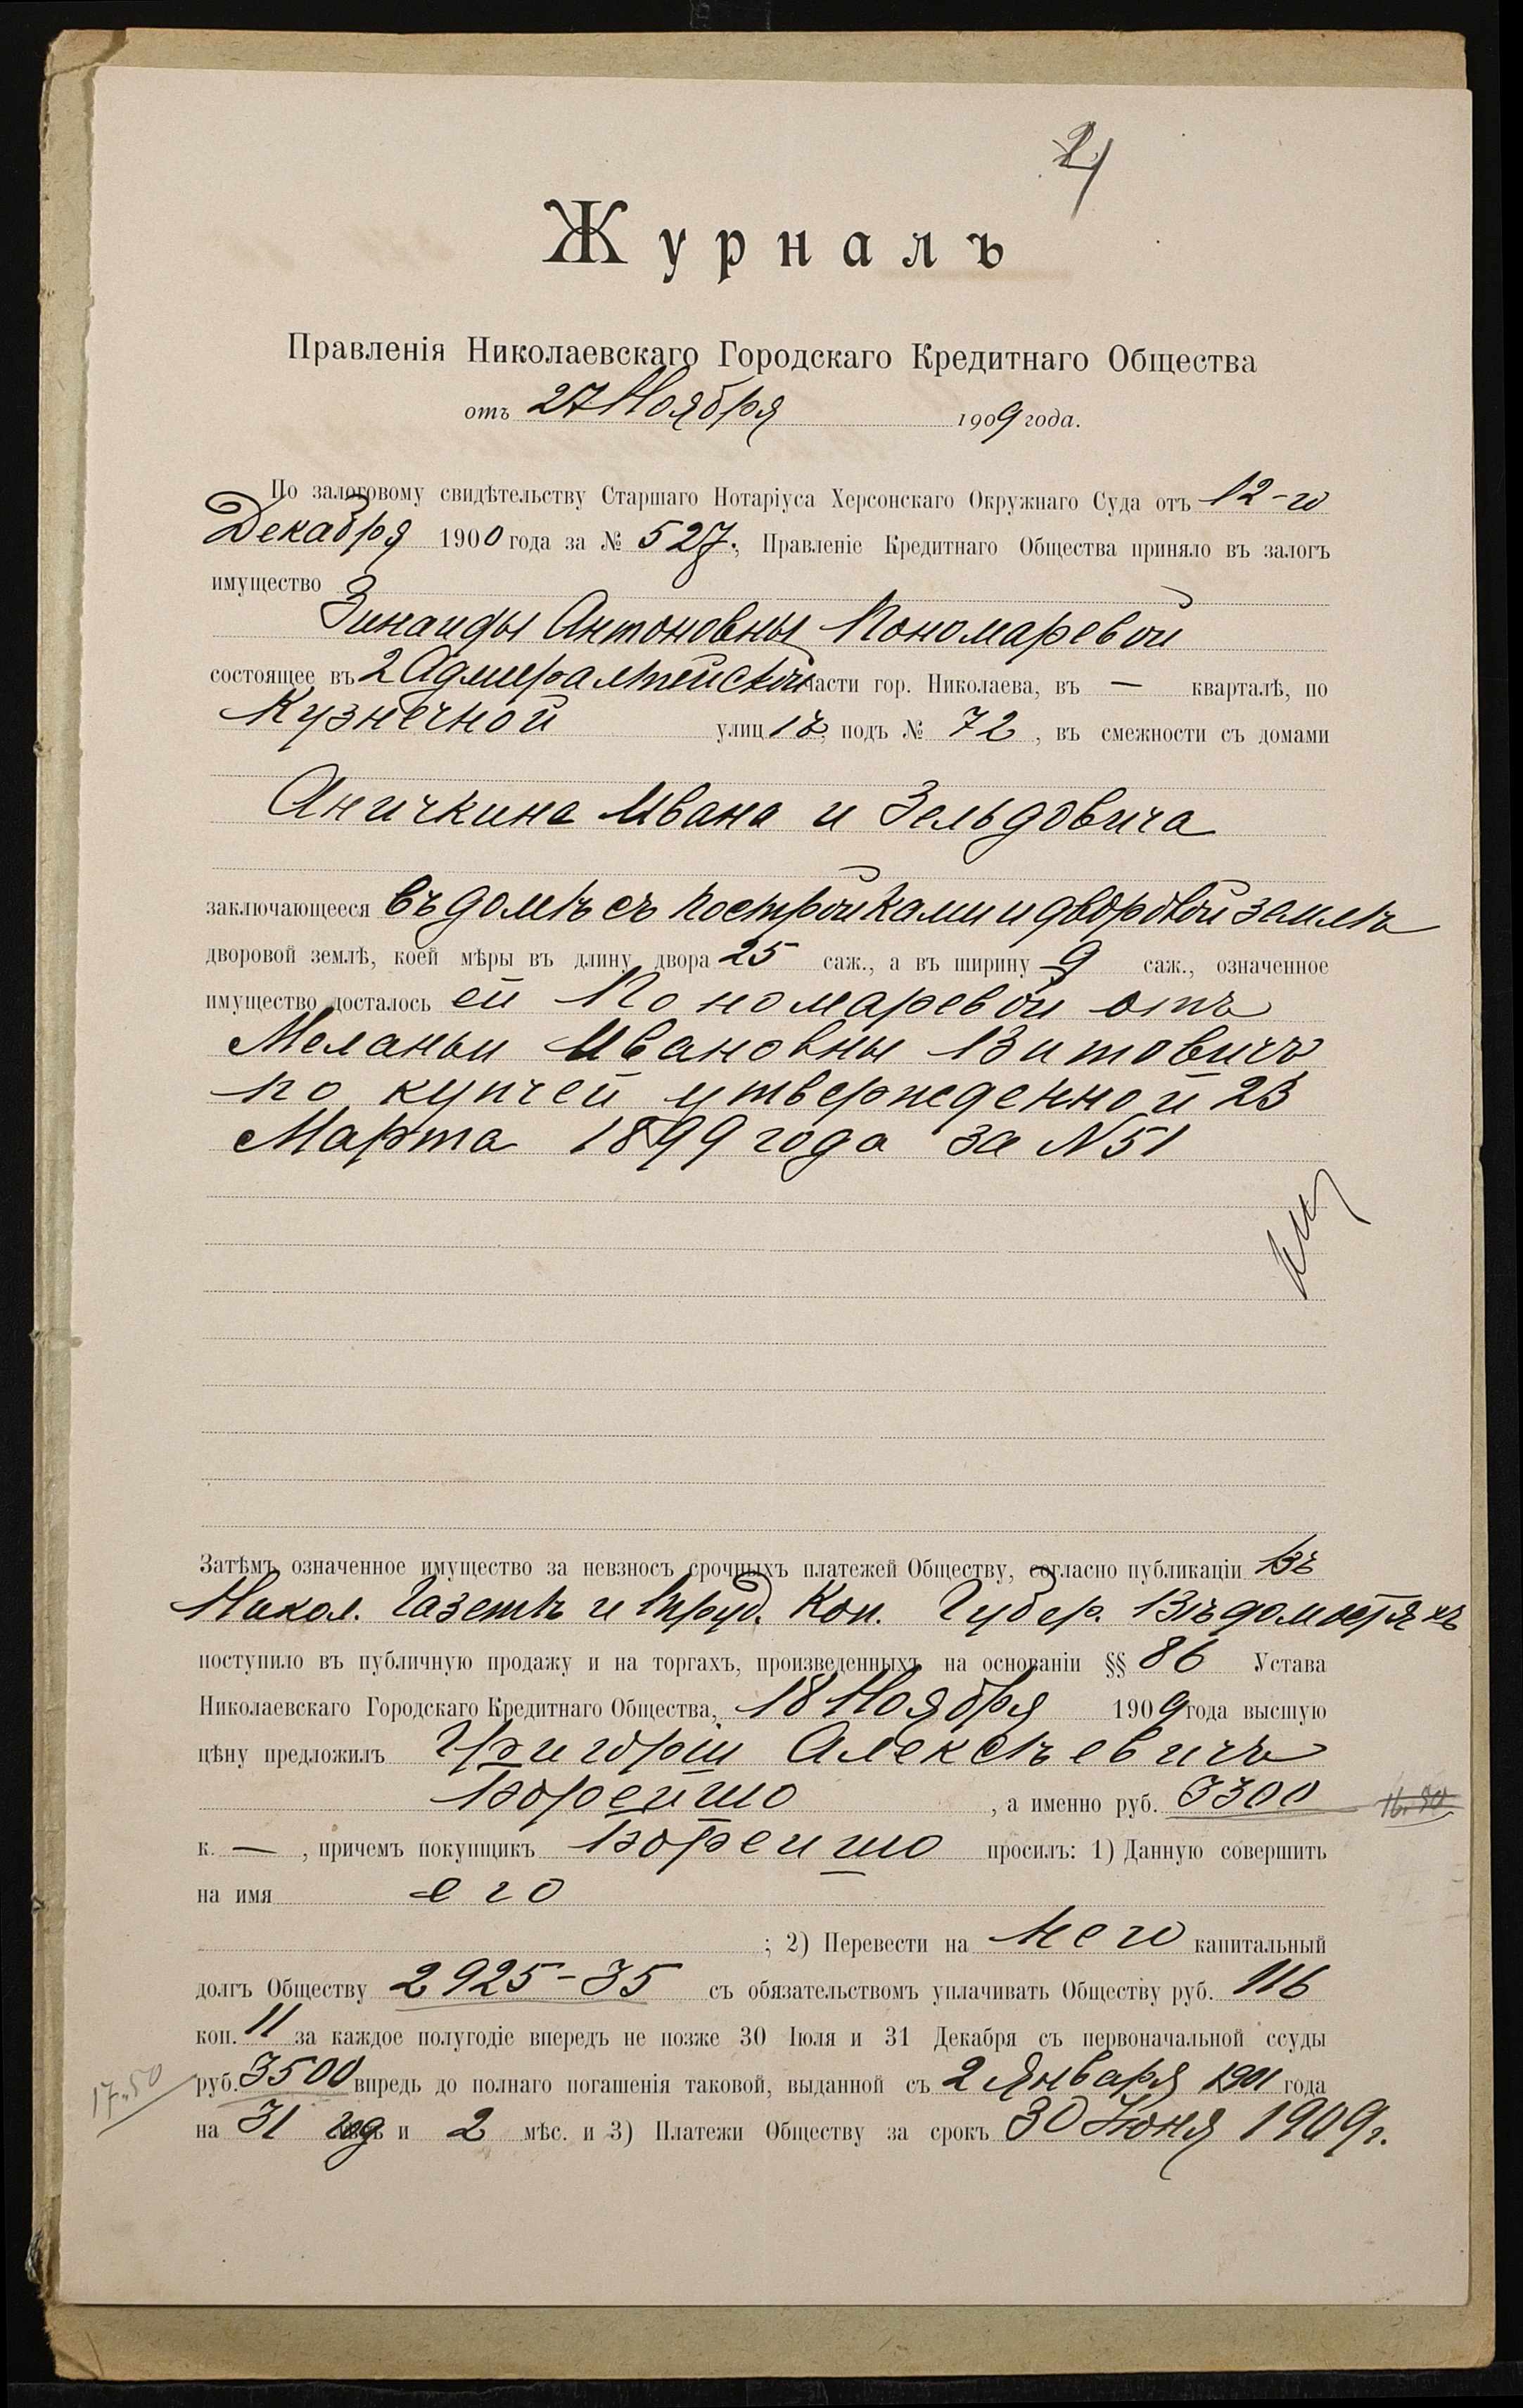 2
Журналъ
Правленія Николаевскаго Городскаго Кредитнаго Общества
отъ 27 Ноября 1909 года.
По залоговому свидѣтельству Старшаго Нотаріуса Херсонскаго Окружнаго Суда отъ 12-го
Декабря 1900 года за № 527, Правленіе Кредитнаго Общества приняло въ залогъ
имущество
Зинаиды Антоновны Пономаревой
состоящее въ 2 Адмиралтейской части гор. Николаева, въ — кварталѣ, по
Кузнечной улицѣ, подъ № 72, въ смежности съ домами
Аничкина Ивана и Зельдовича
заключающееся въ домѣ съ постройками и дворовой землѣ
дворовой землѣ, коей мѣры въ длину двора 25 саж., а въ ширину 9 саж., означенное
имущество досталось ей Пономаревой отъ
Меланьи Ивановны Витовичъ
по купчей утвержденной 23
Марта 1899 года за N 51
Затѣмъ означенное имущество за невзносъ срочныхъ платежей Обществу, согласно публикаціи въ
Никол. Газетѣ и Губер. Вѣдомостяхъ
поступило въ публичную продажу и на торгахъ, произведенныхъ на основаніи §§ 86 Устава
Николаевскаго Городскаго Кредитнаго Общества, 18 Ноября 1909 года высшую
цѣну предложилъ Григорій Алексѣевичъ
Борейшо, а именно руб. 3300 16.50
к. —, причемъ покупщикъ Борейшо просилъ: 1) Данную совершить
на имя его
; 2) Перевести на него капитальный
долгъ Обществу 2925-35 съ обязательствомъ уплачивать Обществу руб. 116
коп. 11 за каждое полугодіе впередъ не позже 30 Іюля и 31 Декабря съ первоначальной ссуды
17.50 руб. 3500 впредь до полнаго погашенія таковой, выданной съ 2 Января 1901 года
на 31 год и 2 мѣс. и 3) Платежи Обществу за срокъ 30 Іюня 1909 г.